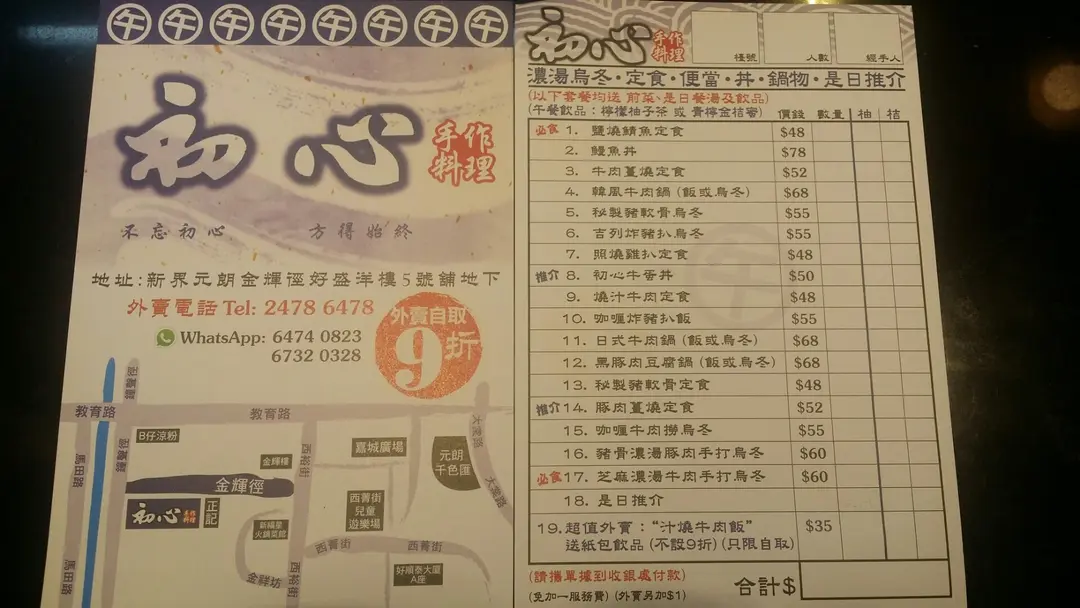 午 午 午 午 午 午 午 午
初心
手作料理
不忘初心 方得始終
地址:新界元朗金輝徑好盛洋樓5號舖地下
外賣電話 Tel: 2478 6478
WhatsApp: 6474 0823
6732 0328
外賣自取
9折
鐘聲徑
教育路
教育路
大棠路
B仔涼粉
嘉城廣場
元朗
千色匯
鐘聲徑
馬田路
西裕街
金輝樓
金輝徑
大棠路
初心 手作料理
正記
西菁街
兒童
遊樂場
新福星
火鍋菜館
西菁街
西菁街
馬田路
金祥坊
西裕街
好順泰大廈
A座
初心 手作料理
檯號
人數
經手人
濃湯烏冬・定食・便當・丼・鍋物・是日推介
(以下套餐均送 前菜、是日餐湯及飲品)
(午餐飲品:檸檬柚子茶 或 青檸金桔蜜) 價錢 數量 柚 桔
必食 1. 鹽燒鯖魚定食 $48
2. 鰻魚丼 $78
3. 牛肉薑燒定食 $52
4. 韓風牛肉鍋 (飯或烏冬) $68
5. 秘製豬軟骨烏冬 $55
6. 吉列炸豬扒烏冬 $55
7. 照燒雞扒定食 $48
推介 8. 初心牛蛋丼 $50
9. 燒汁牛肉定食 $48
10. 咖喱炸豬扒飯 $55
11. 日式牛肉鍋 (飯或烏冬) $68
12. 黑豚肉豆腐鍋 (飯或烏冬) $68
13. 秘製豬軟骨定食 $48
推介 14. 豚肉薑燒定食 $52
15. 咖喱牛肉撈烏冬 $55
16. 豬骨濃湯豚肉手打烏冬 $60
必食 17. 芝麻濃湯牛肉手打烏冬 $60
18. 是日推介
19. 超值外賣:“汁燒牛肉飯” $35
送紙包飲品 (不設9折) (只限自取)
(請攜單據到收銀處付款)
(免加一服務費) (外賣另加$1)
合計$